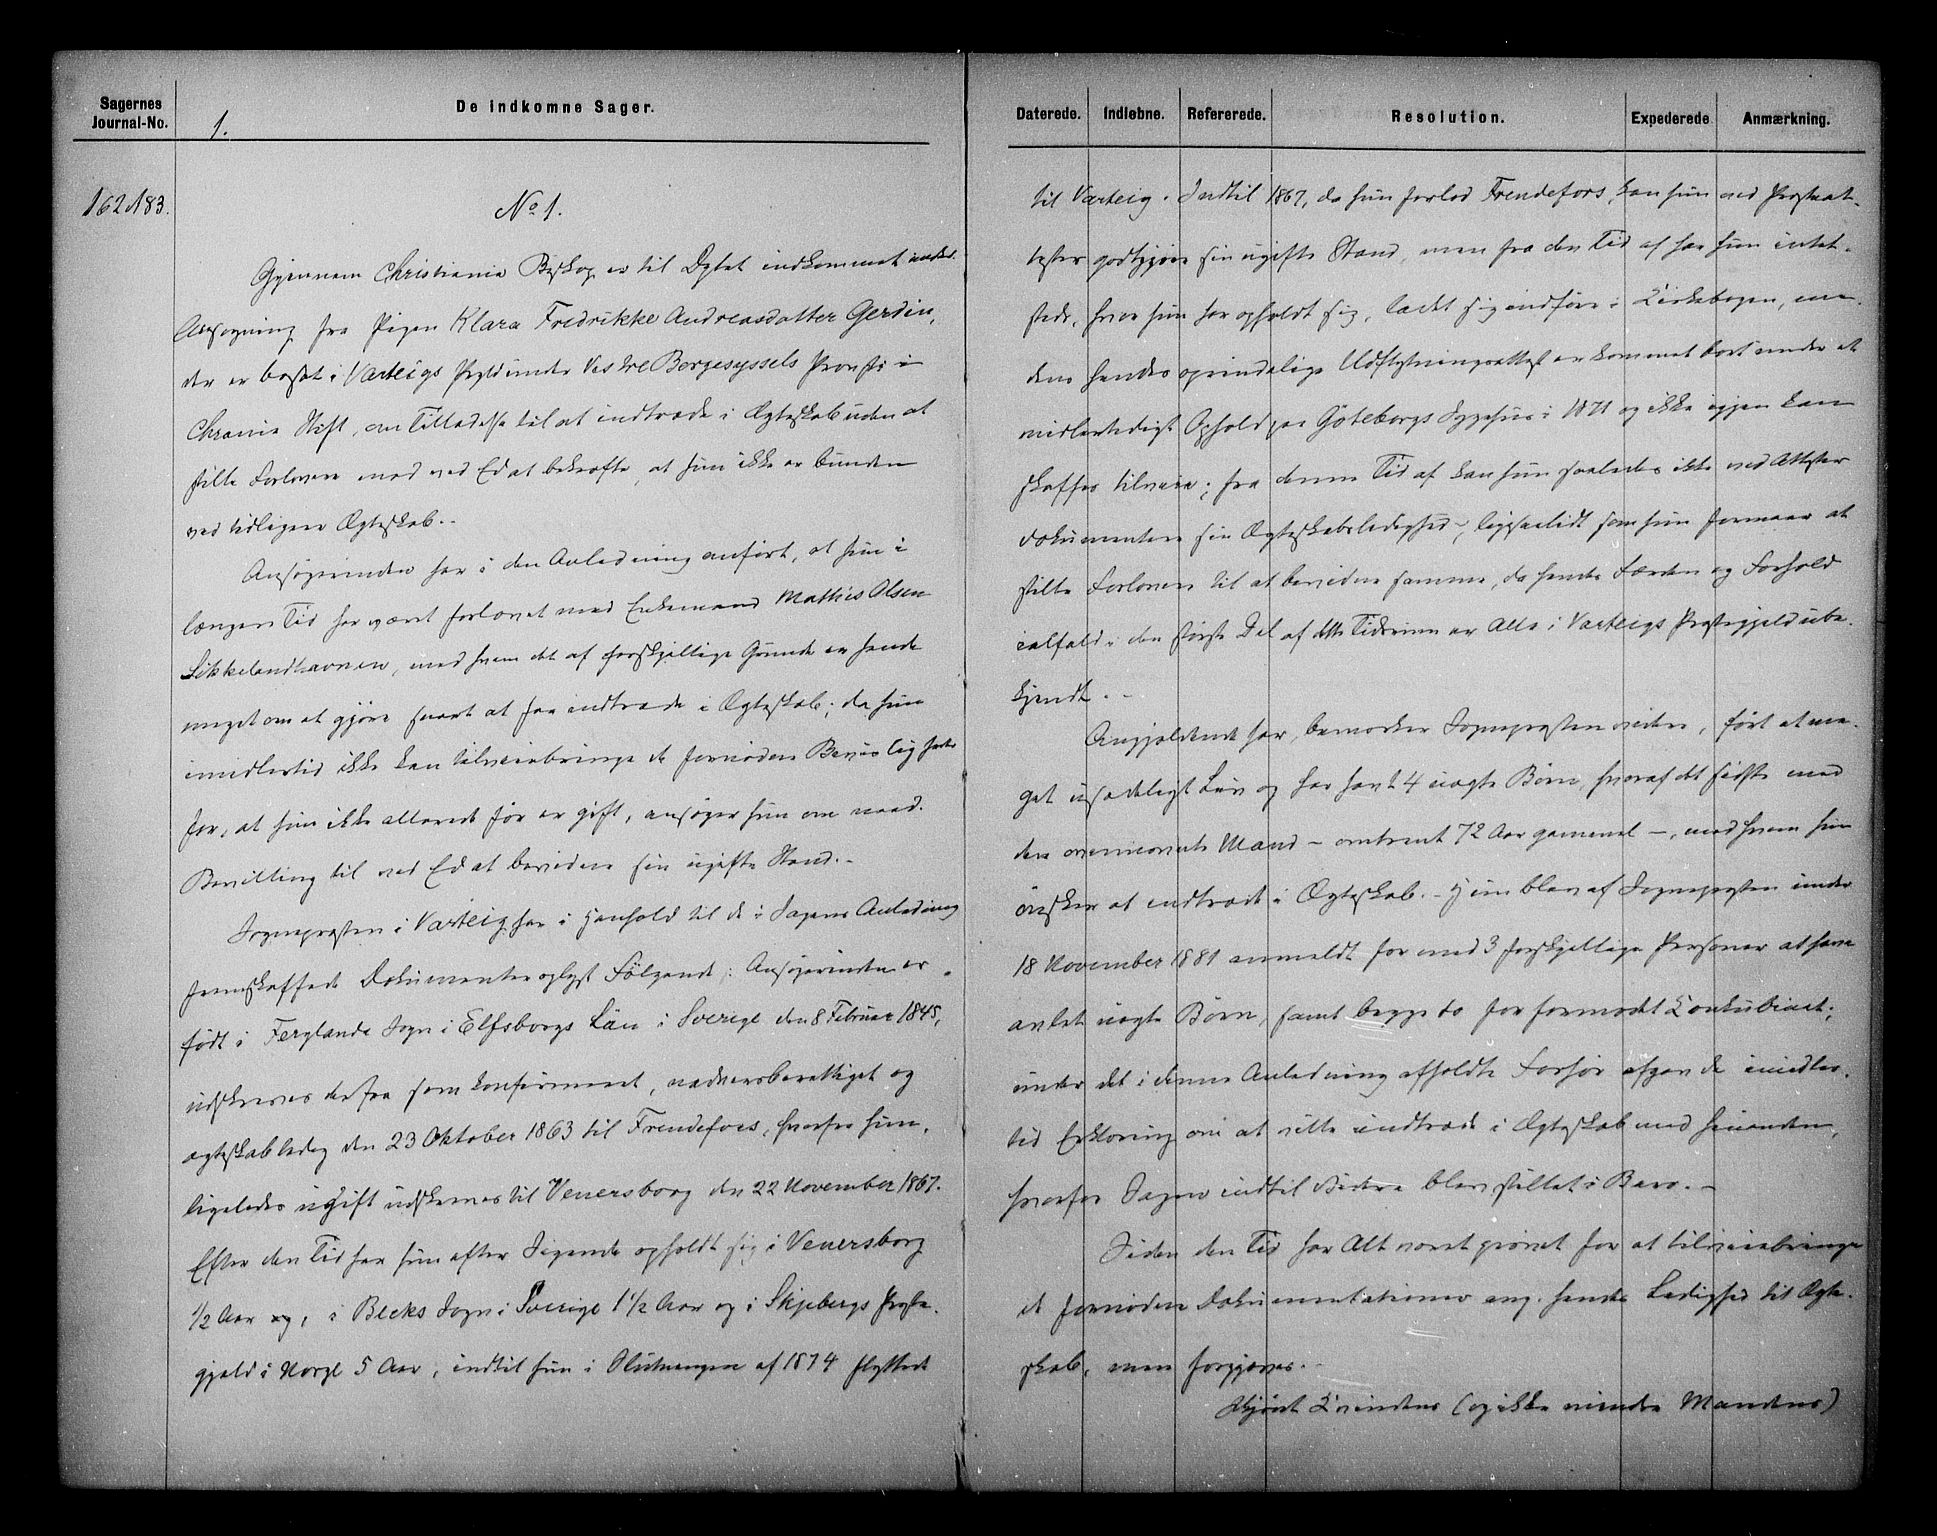 Sagernes
Journal-No.
De indkomne Sager.
1.
162 1/83.
No 1.
Gjennem Christiania Biskop er til Dptet indkommet
Ansøgning fra Pigen Klara Fredrikke Andreasdatter Gerdin,
der er bosat i Varteigs Prgld under Vestre Borgesyssels Provsti i
Chrania Stift, om Tilladelse til at indtræde i Ægteskab uden at
stille Forlovere mod ved Ed at bekræfte, at hun ikke er bunden
ved tidligere Ægteskab.-
Ansøgerinden har i den Anledning anført, at hun i
længere Tid har været forlovet med Enkemand Mathis Olsen
Sikkelandhavnen, med hvem det af forskjellige Grunde er hende
meget om at gjøre snart at faa indtræde i Ægteskab; da hun
imidlertid ikke kan tilveiebringe de fornødne Beviisligheder
for, at hun ikke allerede før er gift, ansøger hun om naad.
Bevilling til ved Ed at bevidne sin ugifte Stand.-
Sognepræsten i Varteig har i Henhold til de i Sagens Anledning
fremskaffede Dokumenter oplyst Følgende: Ansøgerinden er
født i Ferglanda Sogn i Elfsborgs Län i Sverige den 8 Februar 1845,
udskreves derfra som konfirmeret, nadverberettiget og
ægteskabsledig den 23 Oktober 1863 til Frendefors, hvorfra hun,
ligeledes ugift udskreves til Venersborg den 22 November 1867.
Efter den Tid har hun efter Sigende opholdt sig i Venersborg
1/2 Aar og, i Becks Sogn i Sverige 1 1/2 Aar og i Skjebergs Præste-
gjeld i Norge 5 Aar, indtil hun i Slutningen af 1874 flyttede
Daterede.
Indløbne.
Refererede.
Resolution.
Expederede
Anmærkning.
til Varteig. Indtil 1867, da hun forlod Frendefors, kan hun ved Præsteat-
tester godtgjøre sin ugifte Stand, men fra den Tid af har hun intet-
steds, hvor hun har opholdt sig, ladet sig indføre i Kirkebogen, me-
dens hendes oprindelige Udflytningsattest er kommet bort under et
midlertidigt Ophold paa Göteborgs Sygehus i 1871 og ikke igjen kan
skaffes tilveie; fra denne Tid af kan hun saaledes ikke ved Attester
dokumentere sin Ægteskabsledighed, ligesaalidt som hun formaar at
stille Forlovere til at bevidne samme, da hendes Færden og Forhold
ialfald i den største Del af dette Tidsrum er Alle i Varteigs Præstegjeld ube-
kjendt.-
Angjældende har, bemærker Sognepræsten videre, ført et me-
get usædeligt Liv og har havt 4 uægte Børn, hvoraf det sidste med
den ovennævnte Mand - omtrent 72 Aar gammel -, med hvem hun
ønsker at indtræde i Ægteskab.- Hun blev af Sognepræsten under
18 November 1881 anmeldt for med 3 forskjellige Personer at have
avlet uægte Børn, samt begge to for formodet Konkubinat;
under det i denne Anledning afholdte Forhør afgav de imidler-
tid Erklæring om at ville indtræde i Ægteskab med hinanden,
hvorfor Sagen indtil videre blev stillet i Bero.-
Siden den Tid har Alt været prøvet for at tilveiebringe
de fornødne Dokumentationer ang. hendes Ledighed til Ægte-
skab, men forgjæves.-
Skjønt Kvindens (og ikke mindre Mandens)